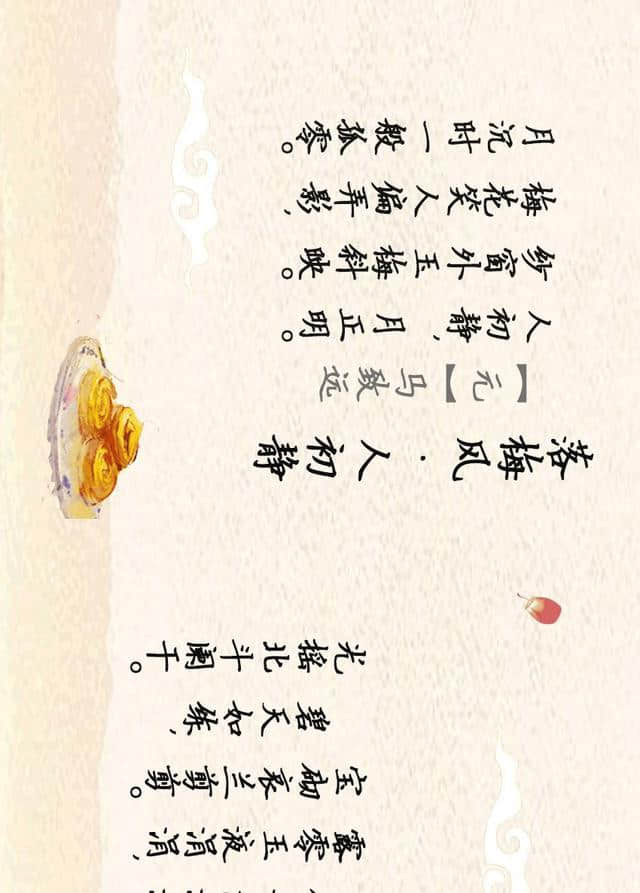 露零玉液涓涓，
宝砌衰兰剪剪。
碧天如练，
光摇北斗阑干。
落梅风·人初静
【元】马致远
人初静，月正明。
纱窗外玉梅斜映。
梅花笑人偏弄影，
月沉时一般孤零。